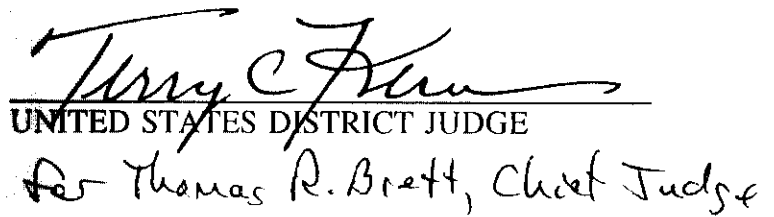 Terry C Kern
UNITED STATES DISTRICT JUDGE
for Thomas R. Brett, Chief Judge